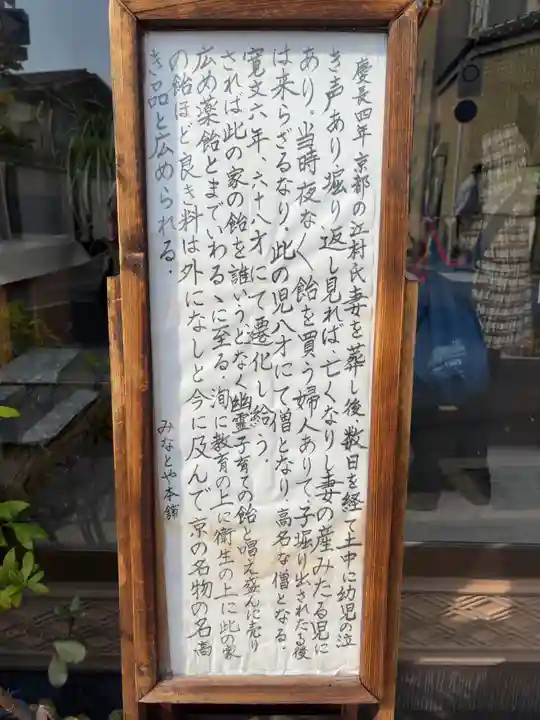 慶長四年 京都の江村氏妻を葬し後、数日を経て土中に幼児の泣
き声あり堀り返し見れば、亡くなりし妻の産みたる児に
あり。当時夜なく飴を買う婦人ありて、子堀り出されたる後
は来らざるなり。此の児八才にて僧となり高名な僧となる。
寛文六年、六十八才にて遷化し給う。
されば此の家の飴を誰いうとなく幽霊子育ての飴と唱え盛んに売り
広め薬飴とまでいわるゝに至る、洵に教育の上に衛生の上に此の家
の飴ほど良き料は外になしと今に及んで京の名物の名高
き品と広められる.
みなとや本舗